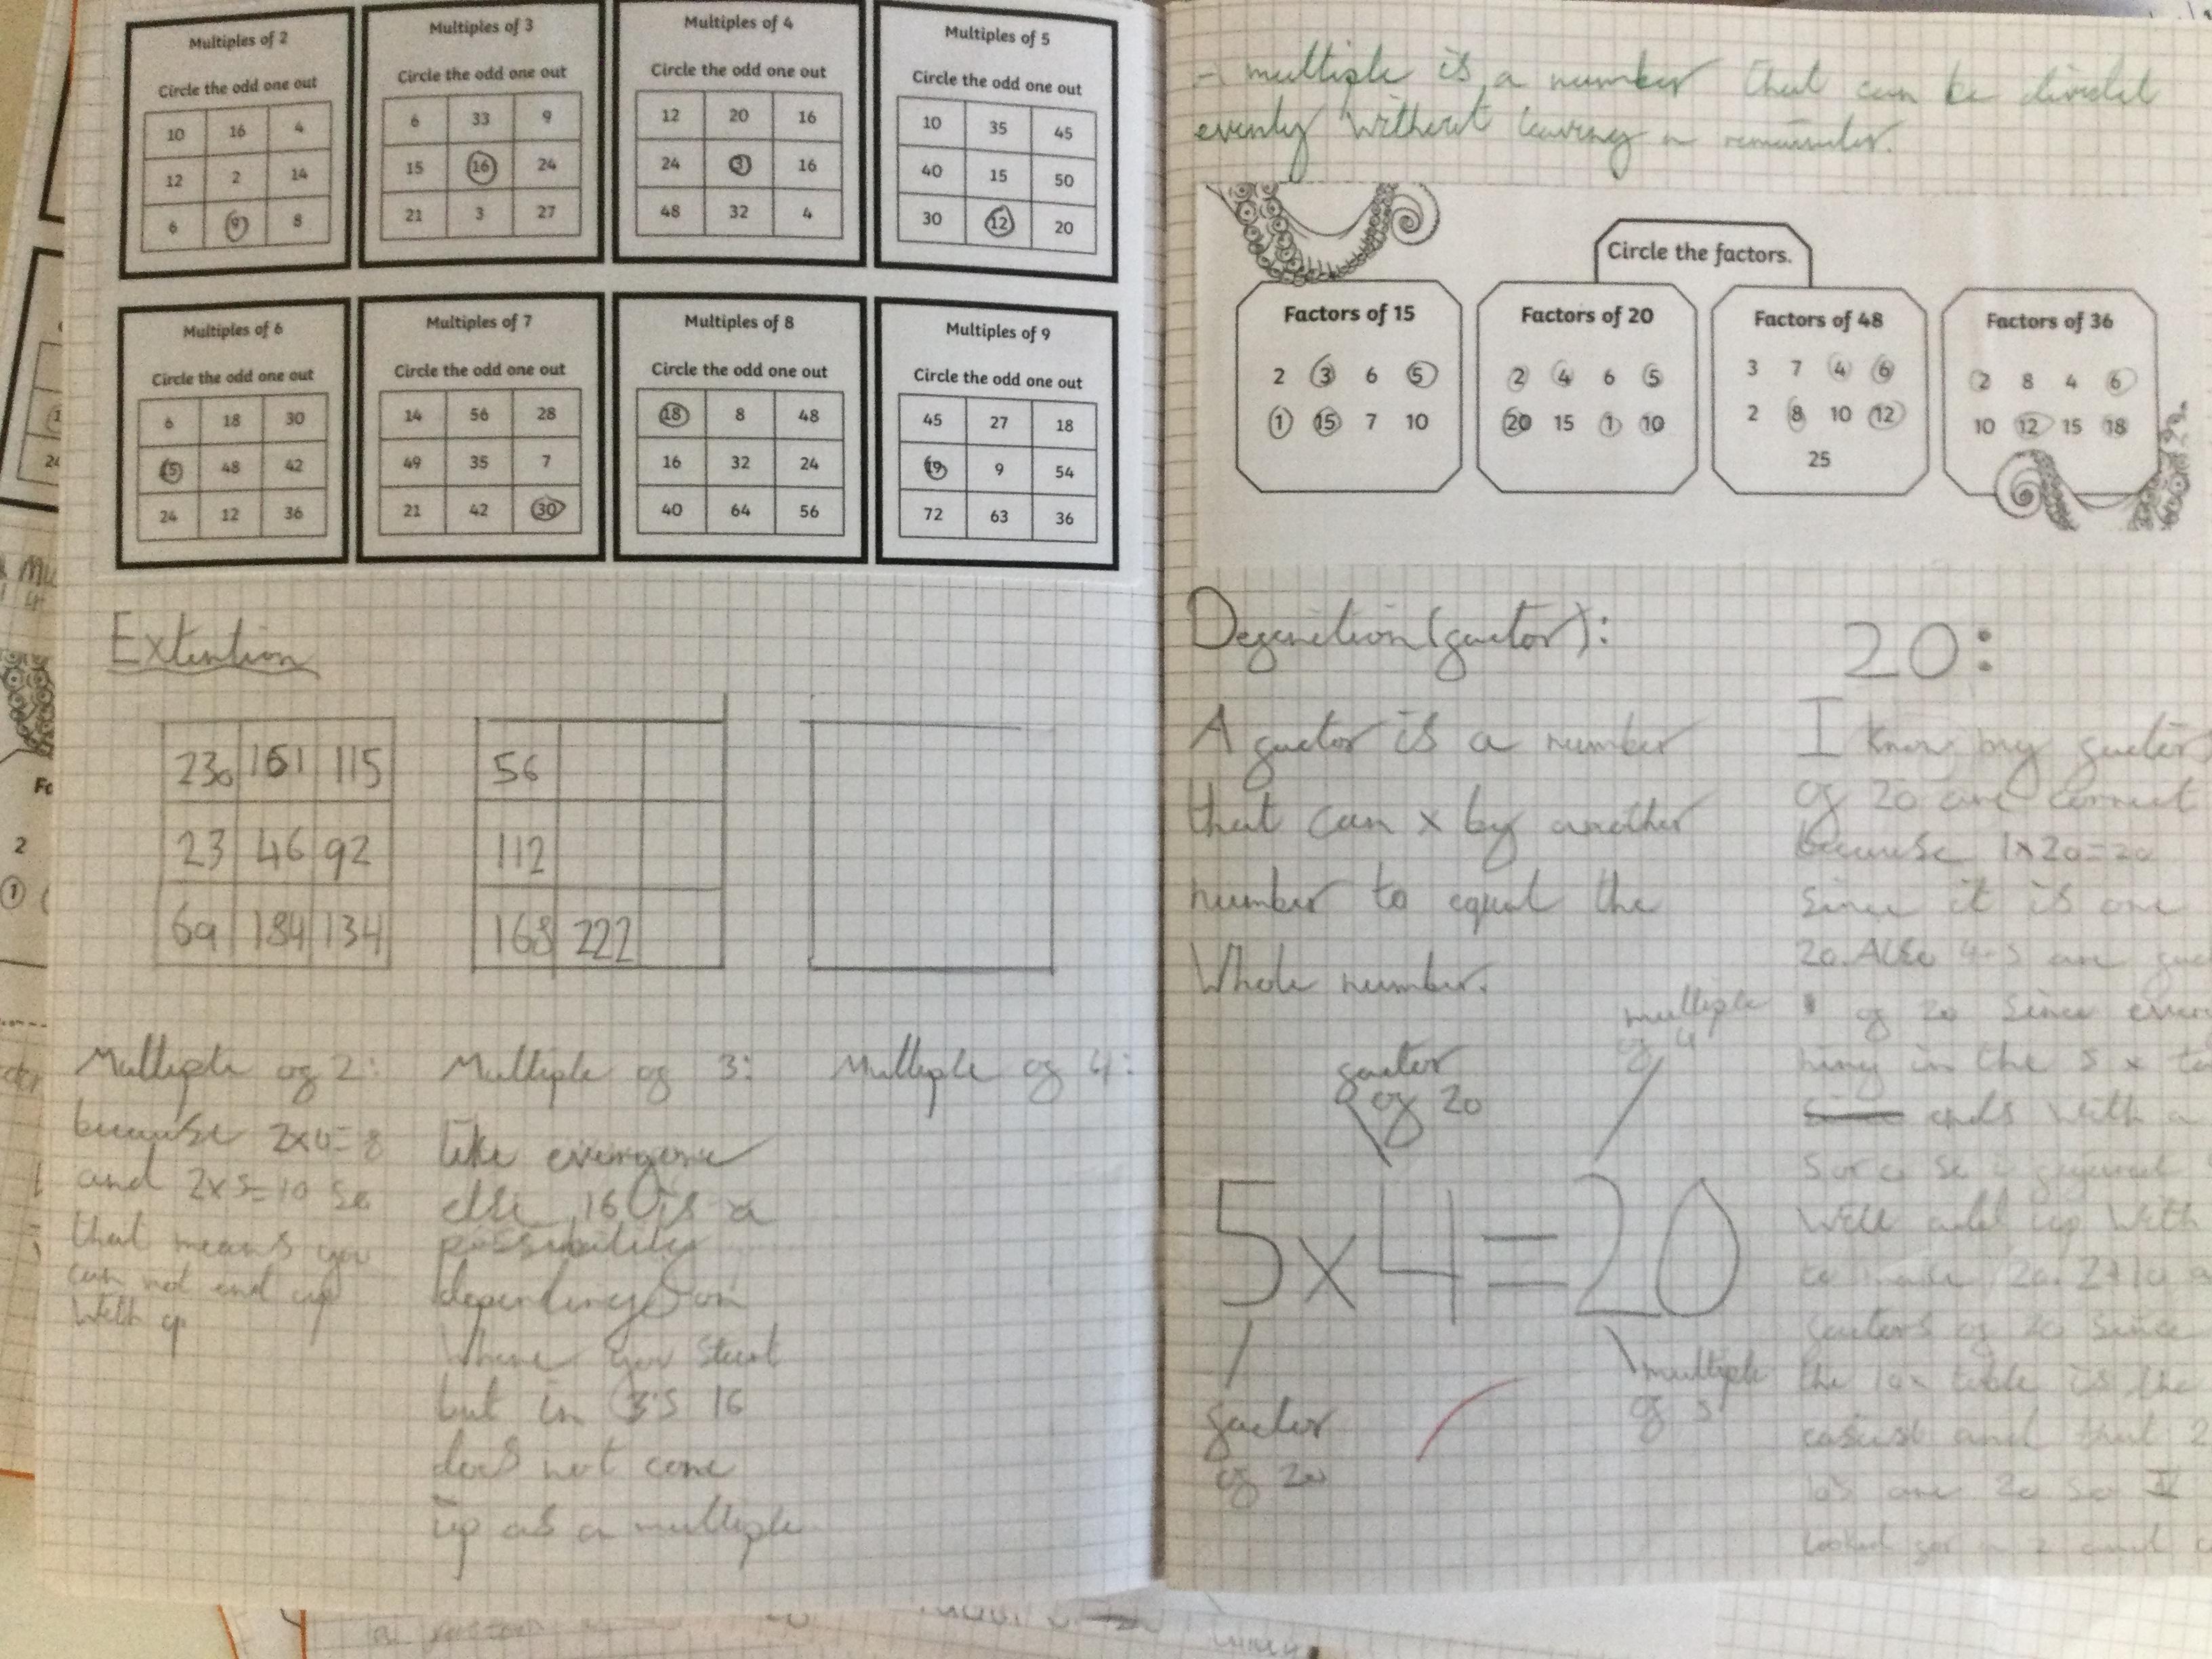 Multiples of 2
Circle the odd one out
10 16 4
12 2 14
6 9 8
Multiples of 3
Circle the odd one out
6 33 9
15 16 24
21 3 27
Multiples of 4
Circle the odd one out
12 20 16
24 3 16
48 32 4
Multiples of 5
Circle the odd one out
10 35 45
40 15 50
30 12 20
Multiples of 6
Circle the odd one out
6 18 30
15 48 42
24 12 36
Multiples of 7
Circle the odd one out
14 56 28
49 35 7
21 42 30
Multiples of 8
Circle the odd one out
18 8 48
16 32 24
40 64 56
Multiples of 9
Circle the odd one out
45 27 18
19 9 54
72 63 36
Extention
230 161 115
23 46 92
69 184 134
56
112
168 222
Multiple of 2:
because 2x4=8
and 2x5=10 so
that means you
can not end up
with 9
Multiple of 3:
like everyone
else 16 is a
possibility
depending on
where you start
but in 3's 16
does not come
up as a multiple
Multiple of 4:
multiple is a number that can be divided
evenly without leaving a remainder.
Circle the factors.
Factors of 15
2 3 6 5
1 15 7 10
Factors of 20
2 4 6 5
20 15 1 10
Factors of 48
3 7 4 6
2 8 10 12
25
Factors of 36
2 8 4 6
10 12 15 18
Definition (factor):
A factor is a number
that can x by another
number to equal the
whole number.
factor
of 20
multiple
of 4
5x4=20
factor
of 20
multiple
of 5
20:
I know my factors
of 20 are correct
because 1x20=20
since it is one
20. Also 4+5 are
of 20 since
in the 5 x
ends with a
will add up with
to make 20. 2+10
factors of 20 since
the 10x table is the
easiest and that 2
10s are 20 so I
looked for a 2 and